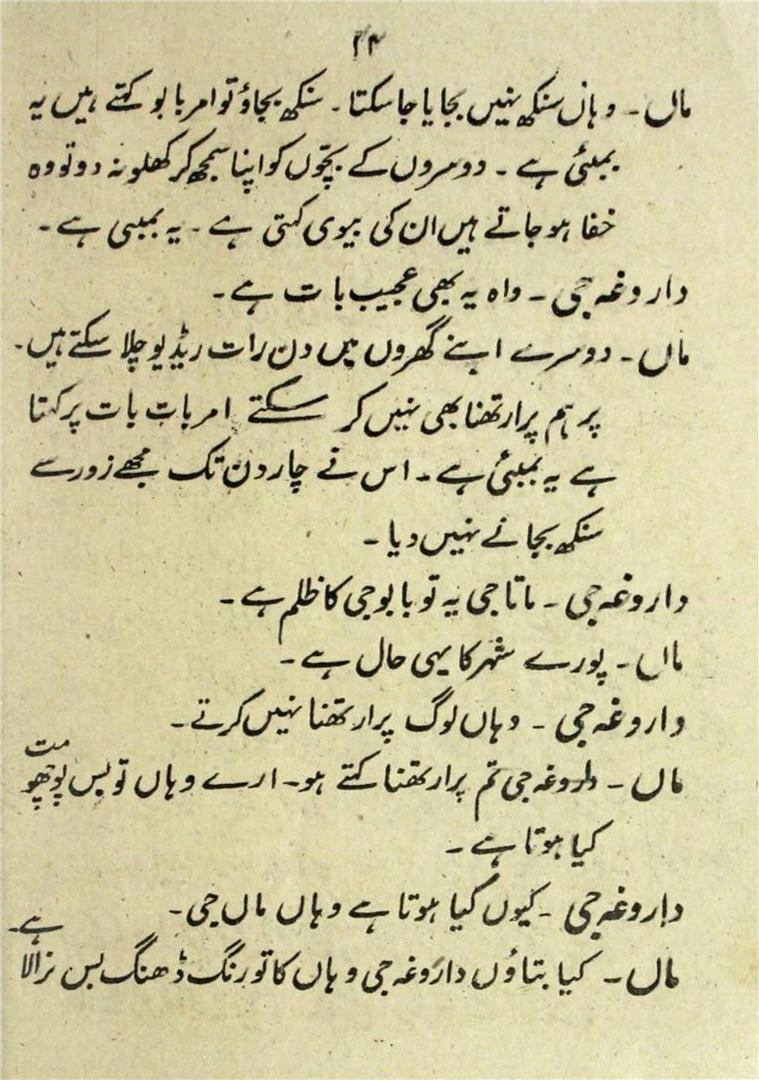 ۲۴
ماں۔ وہاں سنکھ نہیں بجایا جا سکتا۔ سنکھ بجاؤ تو امر بابو کہتے ہیں یہ
بمبئی ہے۔ دوسروں کے بچّوں کو اپنا سمجھ کر کھلونہ دو تو وہ
خفا ہو جاتے ہیں ان کی بیوی کہتی ہے۔ یہ بمبئی ہے۔
داروغہ جی۔ واہ یہ بھی عجیب بات ہے۔
ماں۔ دوسرے اپنے گھروں میں دن رات ریڈیو چلا سکتے ہیں۔
پر ہم پرارتھنا بھی نہیں کر سکتے امر بات بات پر کہتا
ہے یہ بمبئی ہے۔ اس نے چار دن تک مجھے زور سے
سنکھ بجانے نہیں دیا۔
داروغہ جی۔ ماتا جی یہ تو بابو جی کا ظلم ہے۔
ماں۔ پورے شہر کا یہی حال ہے۔
داروغہ جی۔ وہاں لوگ پرارتھنا نہیں کرتے۔
ماں۔ داروغہ جی تم پرارتھنا کہتے ہو۔ ارے وہاں تو بس مت پوچھو
کیا ہوتا ہے۔
داروغہ جی۔ کیوں کیا ہوتا ہے وہاں ماں جی۔
ماں۔ کیا بتاؤں داروغہ جی وہاں کا تو رنگ ڈھنگ بس نرالا ہے۔